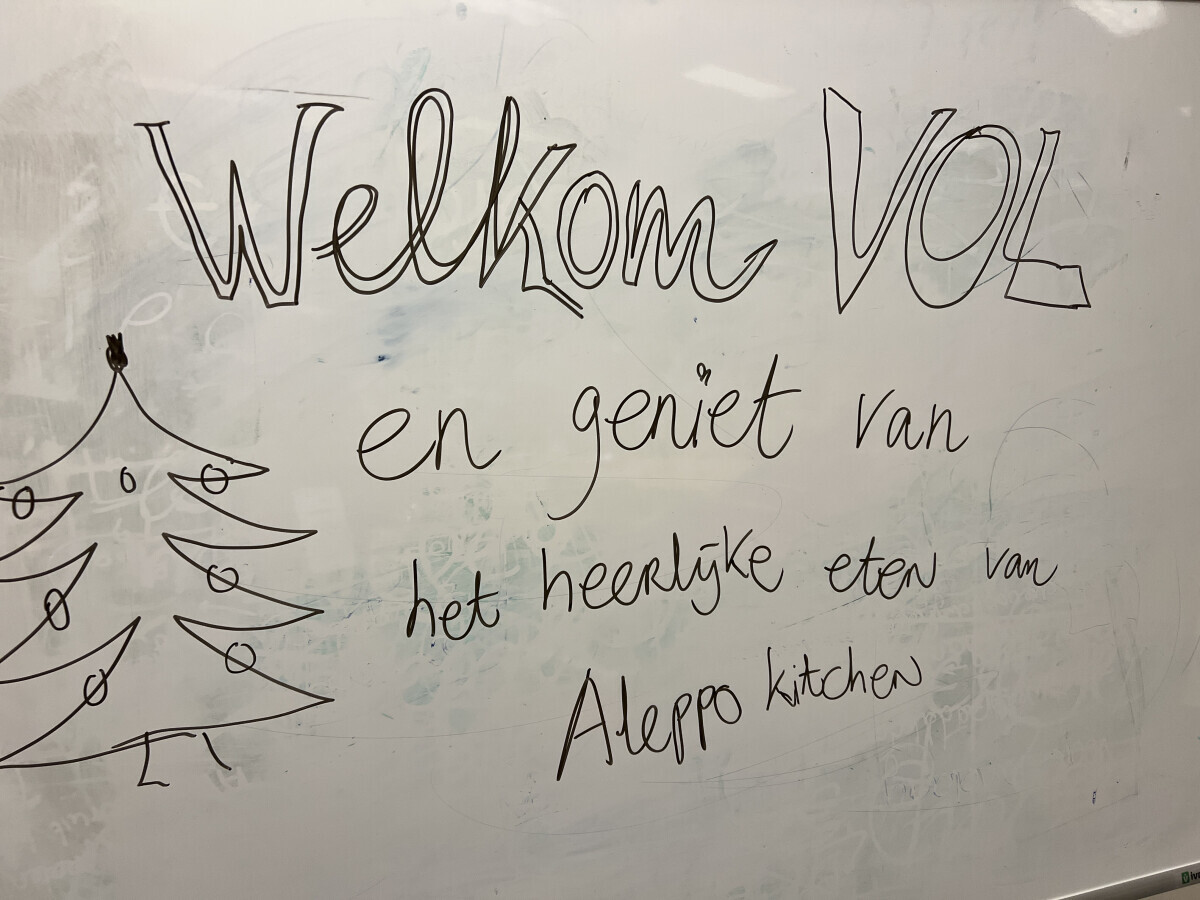 Welkom VOL
en geniet van
het heerlijke eten van
Aleppo kitchen